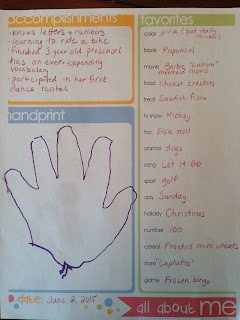 accomplishments
- knows letters & numbers
- learning to ride a bike
- finished 3 year old preschool
- has an ever-expanding
vocabulary
- participated in her first
dance recital
handprint
date: June 2, 2015
favorites
color pink (but really
book Rapunzel
movie Barbie "Lumina"
mermaid movie
food cheese crackers
treat Swedish Fish
tv show Mickey
toy Elsa doll
animal dogs
song Let It Go
sport golf
day Sunday
holiday Christmas
number 100
cereal Frosted mini wheats
store
game Frozen bingo
all about me